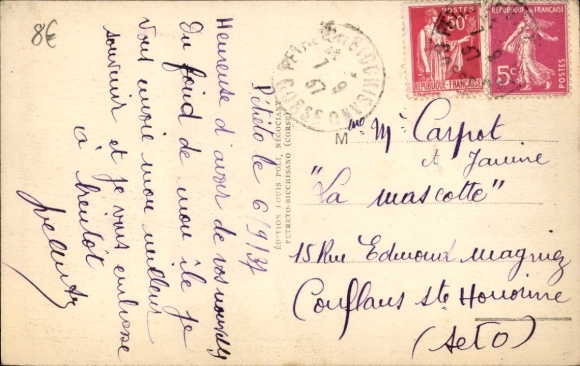 8€
Petreto le 6/9/37
Heureuse d'avoir de vos nouvelles
Du fond de mon île je
vous envoie mon meilleur
souvenir et je vous embrasse
à bientôt
ÉDITION LOUIS POLI, NÉGOCIANT
PETRETO-BICCHISANO (CORSE)
POSTES
50c
RÉPUBLIQUE FRANÇAISE
POSTES
5c
RÉPUBLIQUE FRANÇAISE
PETRETO-BICCHISANO
CORSE
M
me Mr Carpot
et Janine
"La mascotte"
15 Rue Edmond Magniez
Conflans Ste Honorine
(S et O)